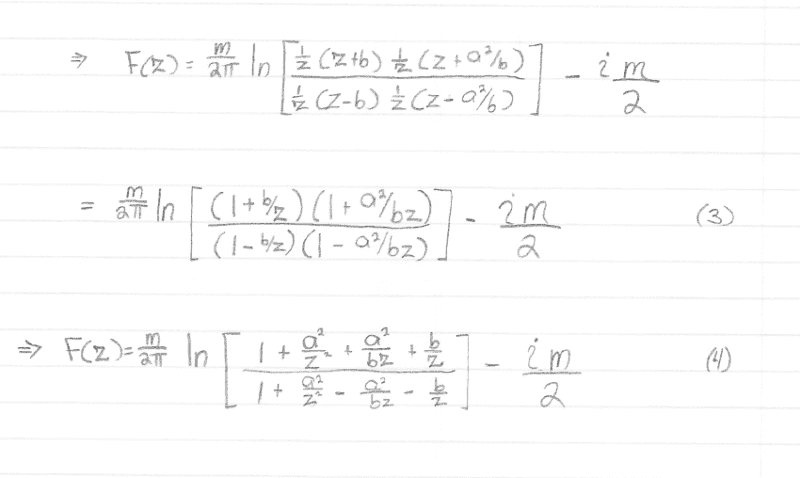 ⇒ F(z) = m/2π ln [ 1/z (z+b) 1/z (z + a²/b) / 1/z (z-b) 1/z (z - a²/b) ] - i m/2
= m/2π ln [ (1 + b/z)(1 + a²/bz) / (1 - b/z)(1 - a²/bz) ] - im/2 (3)
⇒ F(z) = m/2π ln [ 1 + a²/z² + a²/bz + b/z / 1 + a²/z² - a²/bz - b/z ] - im/2 (4)